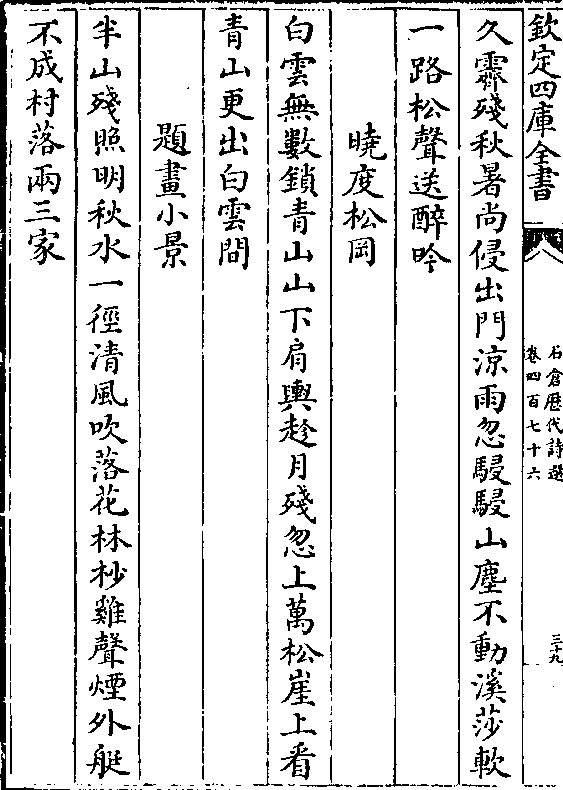 欽定四庫全書
石倉歴代詩選
卷四百七十六
三十九
久霽殘秋暑尚侵出門涼雨忽駸駸山塵不動溪莎軟
一路松聲送醉吟
曉度松岡
白雲無數鎖青山山下肩輿趁月殘忽上萬松崖上看
青山更出白雲間
題畫小景
半山殘照明秋水一徑清風吹落花林杪雞聲煙外艇
不成村落兩三家